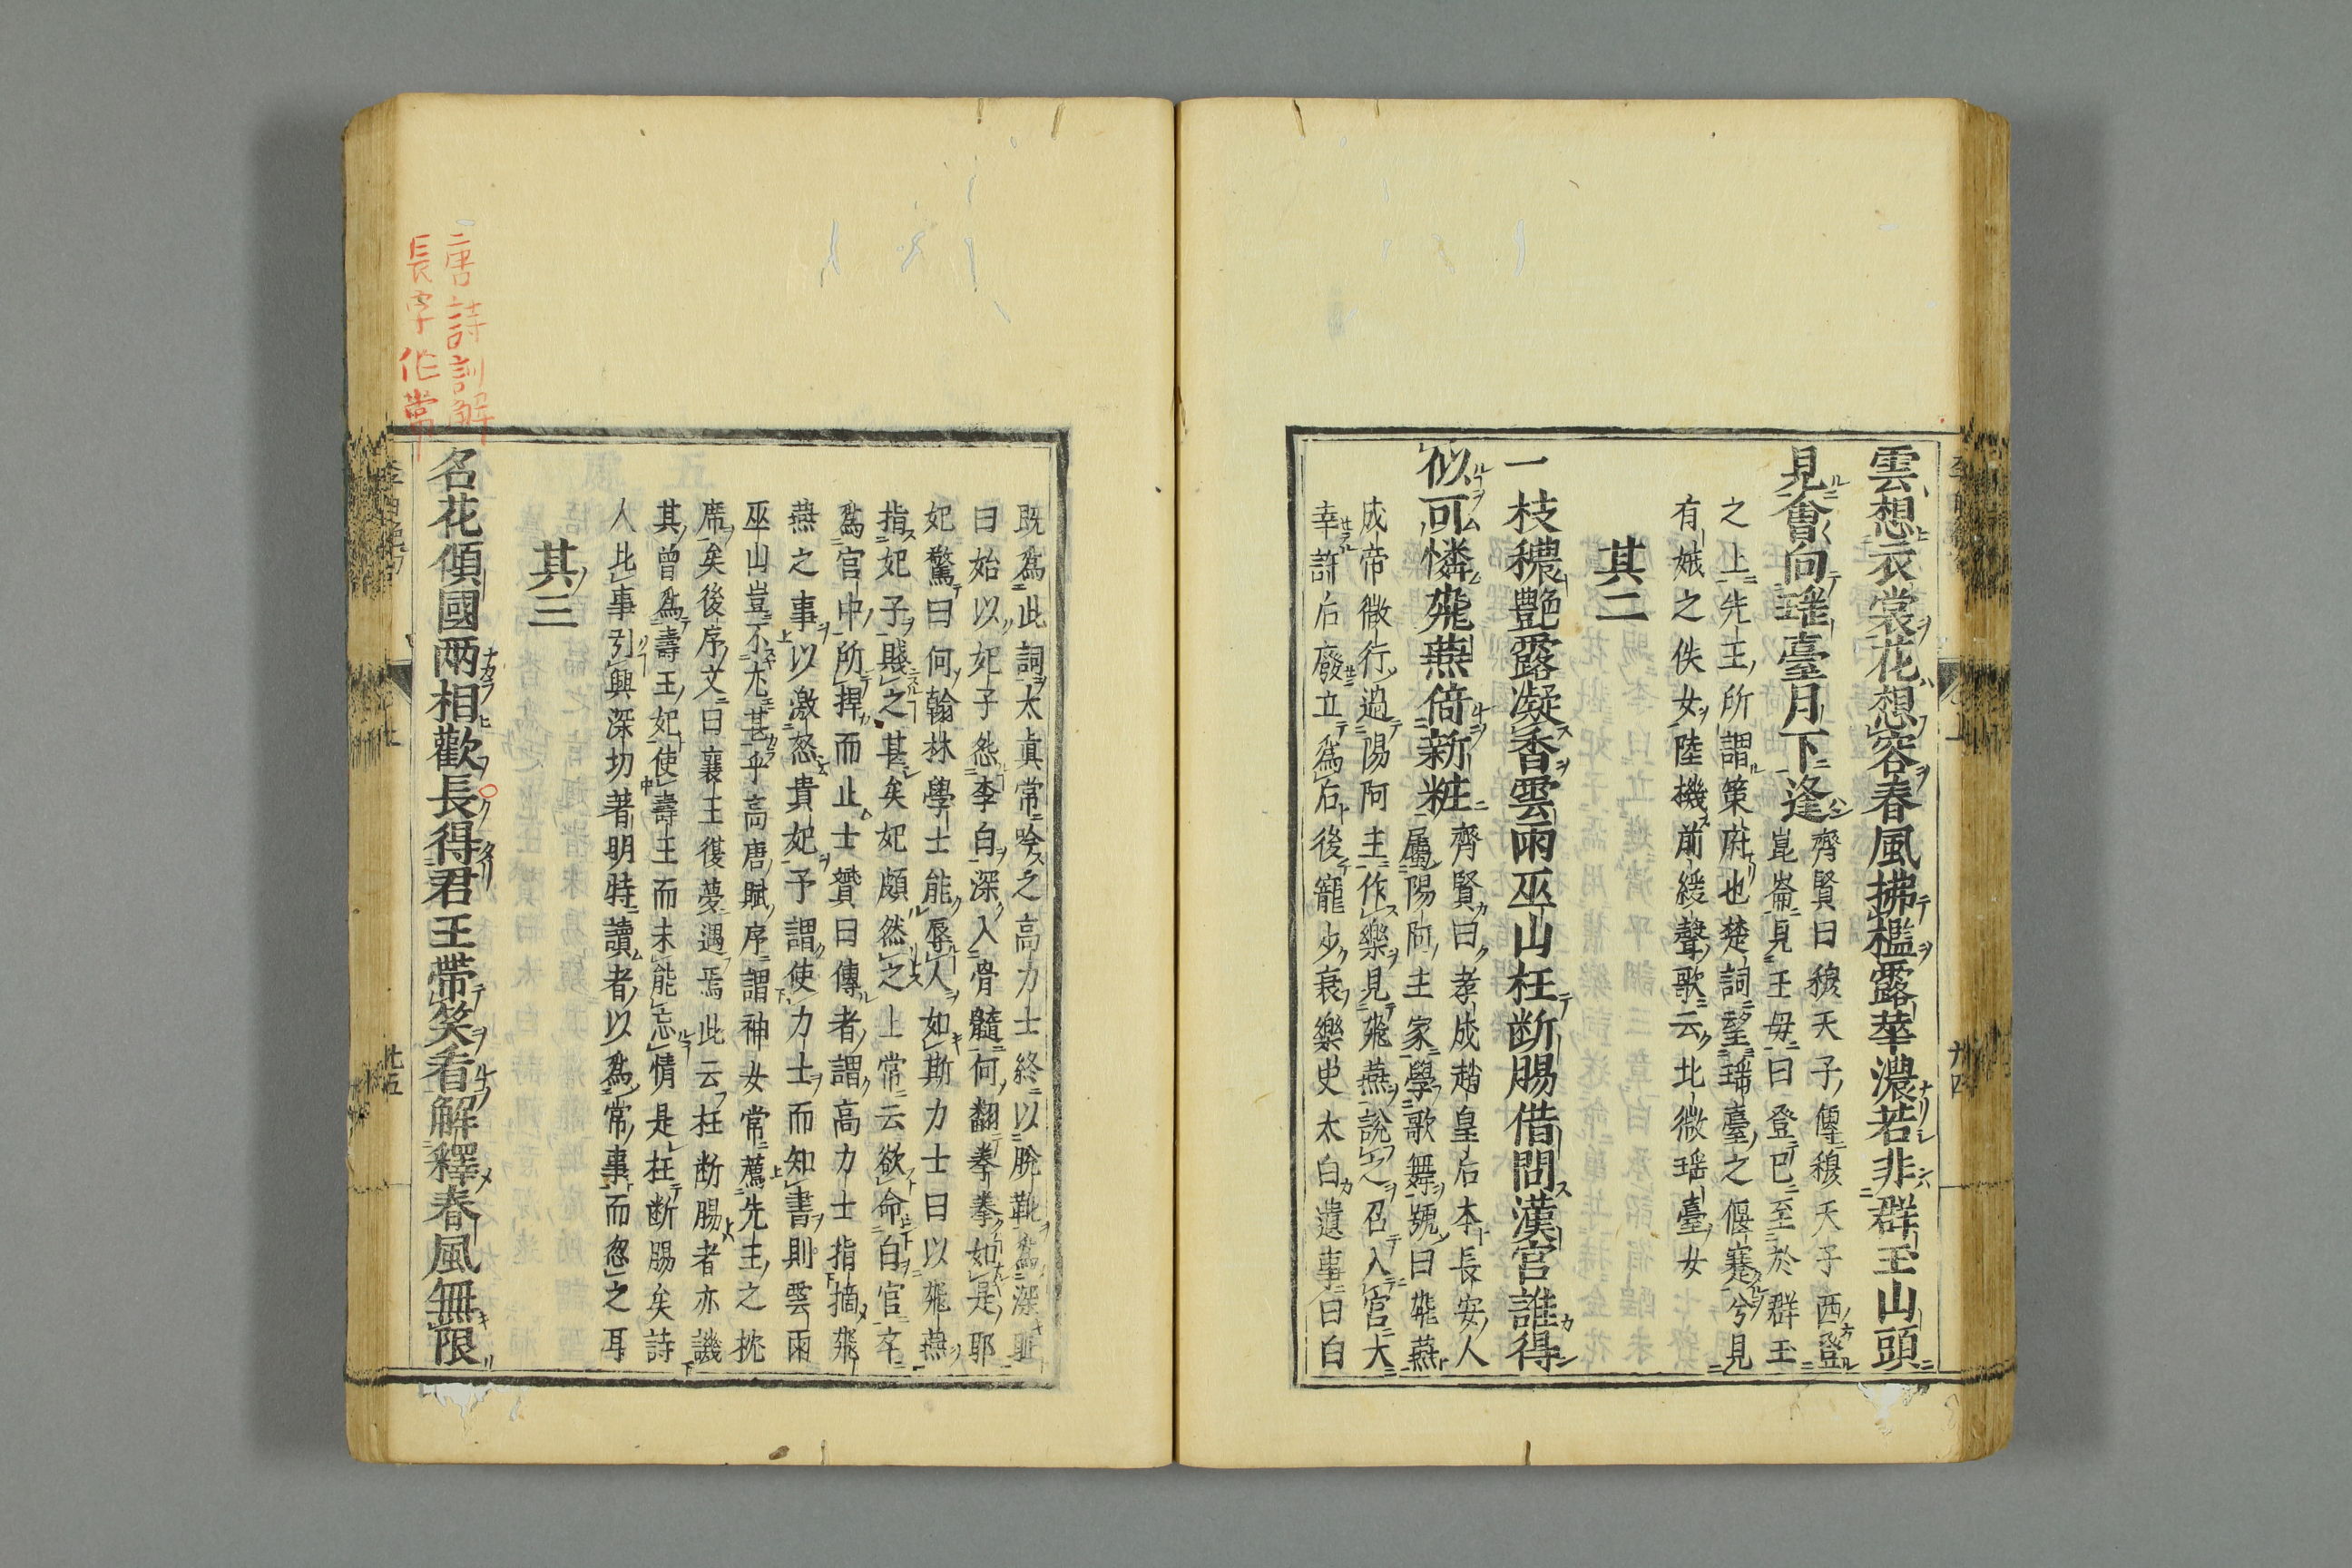 雲想衣裳花想容春風拂檻露華濃若非群玉山頭
見會向瑤臺月下逢
齊賢曰穆天子傳穆天子西登
崑崙見王母曰登已至於群玉
之上先王所謂策府也楚詞望瑤臺之偃蹇兮見
有娀之佚女陸機前緩聲歌云北徵瑤臺女
其二
一枝穠艷露凝香雲雨巫山枉断腸借問漢宮誰得
似可憐飛燕倚新粧
齊賢曰孝成趙皇后本長安人
屬陽阿主家學歌舞號曰飛燕
成帝微行過陽阿主作樂見飛燕說之召入宮大
幸許后廢立為后後寵少衰樂史太白遺事曰白
既為此詞太真常吟之高力士終以脫靴為深耻
曰始以妃子怨李白深入骨髓何翻拳拳如是耶
妃驚曰何翰林學士能辱人如斯力士曰以飛燕
指妃子賤之甚矣妃頗然之上常云欲命白官卒
為宮中所捍而止士贇曰傳者謂高力士指摘飛
燕之事以激怒貴妃予謂使力士而知書則雲雨
巫山豈不尤甚乎高唐賦序謂神女常薦先王之枕
席矣後序文曰襄王復夢遇焉此云枉断腸者亦譏
其曾為壽王妃使壽王而未能忘情是枉断腸矣詩
人比事引興深切著明特讀者以為常事而忽之耳
其三
名花傾國兩相歡長得君王帶笑看解釋春風無限
唐詩訓解
長字作常